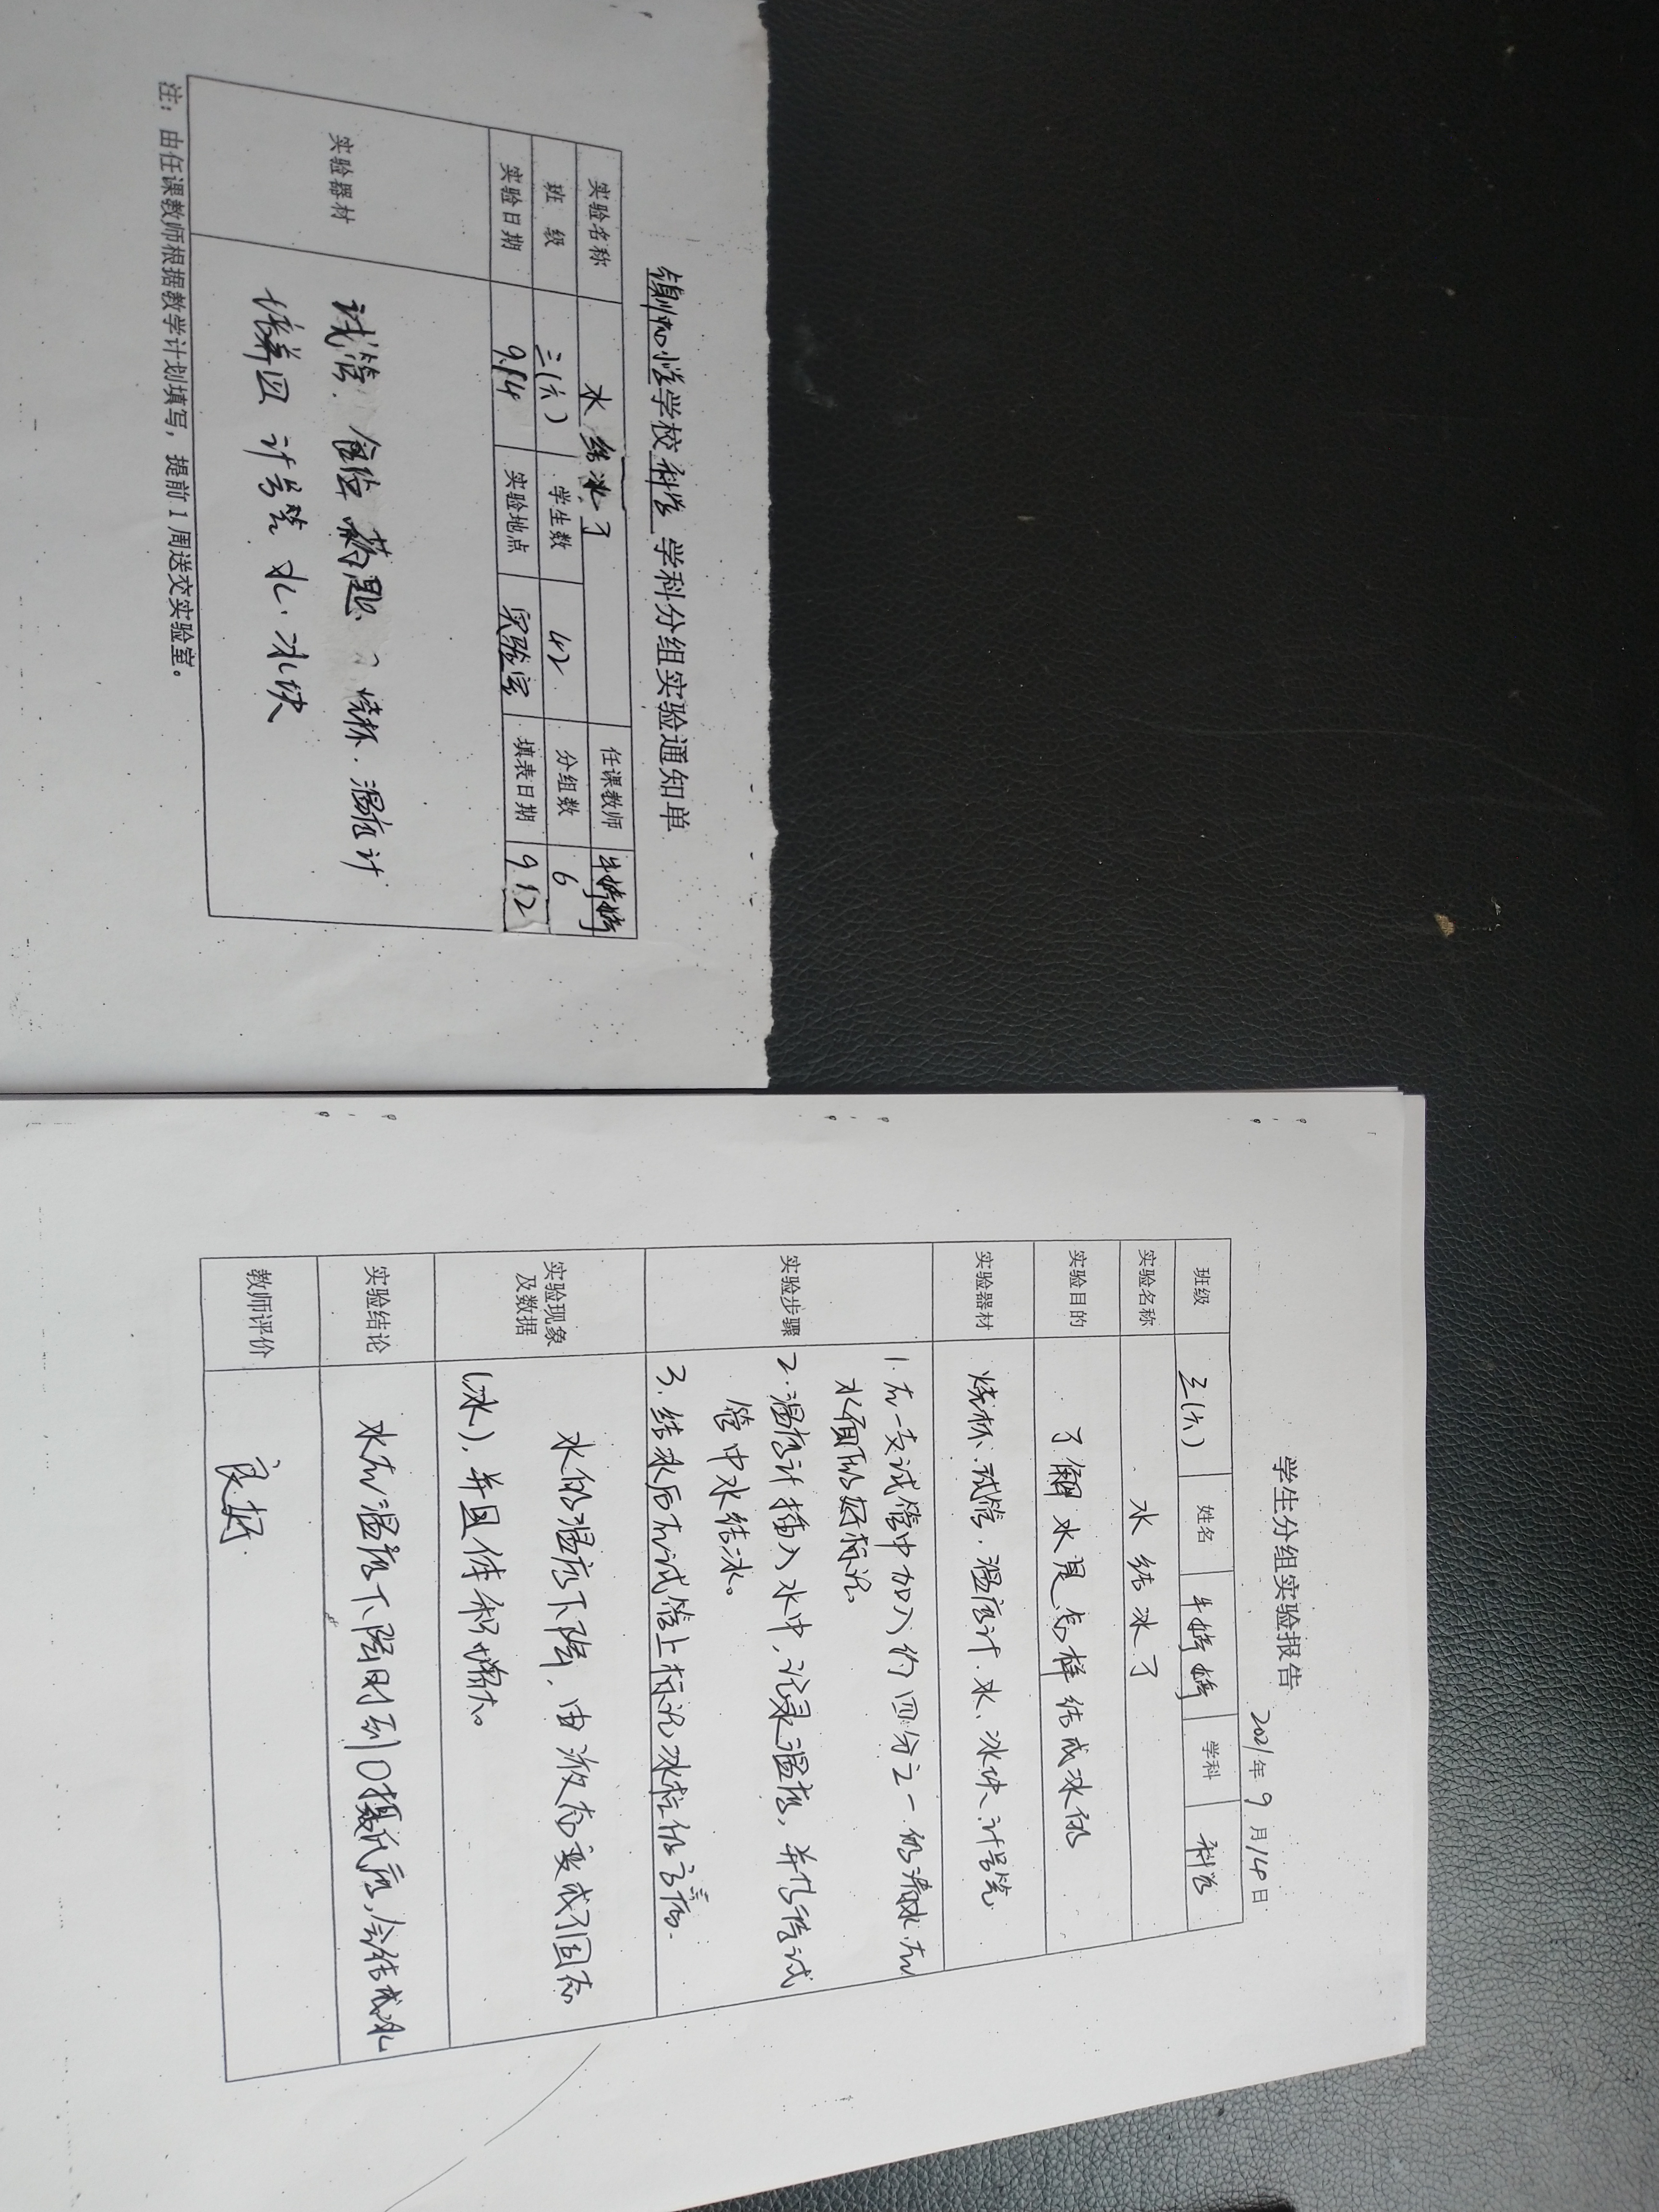 学校 科学 学科分组实验通知单
实验名称 水结冰了 任课教师
班级 三(六) 学生数 42 分组数 6
实验日期 9.14 实验地点 实验室 填表日期 9.12
实验器材
试管、食盐、药匙、烧杯、温度计
培养皿 计时器 水、冰块
注：由任课教师根据教学计划填写，提前1周送交实验室。
学生分组实验报告
2021年9月14日
班级 三(六) 姓名 学科 科学
实验名称 水结冰了
实验目的 了解水是怎样结成冰的
实验器材 烧杯、试管、温度计、水、冰块、
实验步骤
1.在一支试管中加入约四分之一的清水,在
水面的好标记。
2.温度计插入水中,记录温度,并估试
管中水结冰。
3.结冰后在试管上标记冰柱的高度.
实验现象
及数据
水的温度下降,由液态变成了固态
(冰),并且体积增大。
实验结论 水在温度下降时到0摄氏度,会结成冰
教师评价 良好.